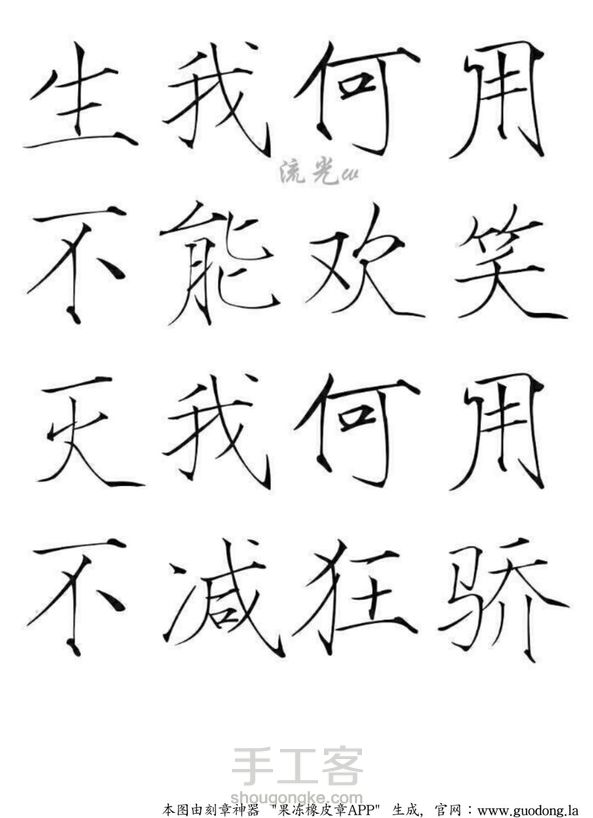 生我何用
流光
不能欢笑
灭我何用
不减狂骄
手工客
shougongke.com
本图由刻章神器 "果冻橡皮章APP" 生成，官网：www.guodong.la